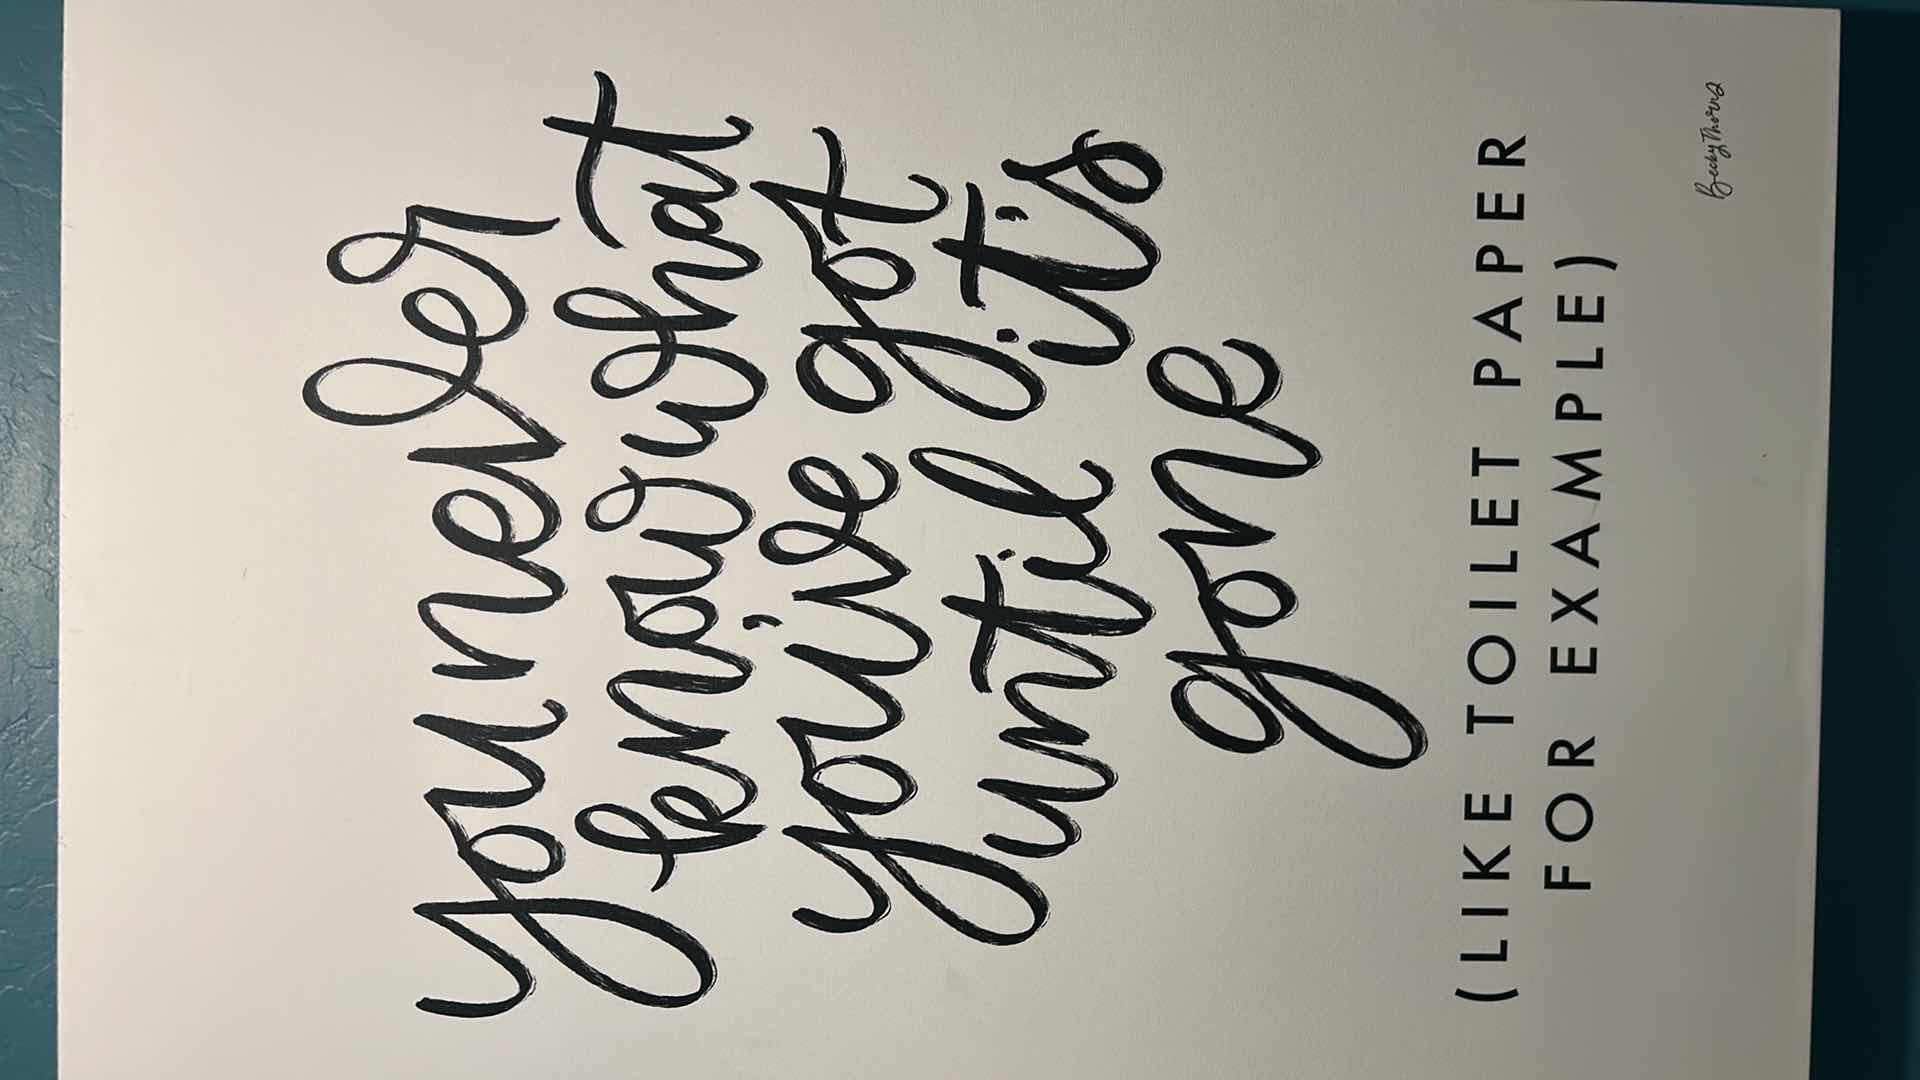 you never
know what
you've got
until it's
gone
(LIKE TOILET PAPER
FOR EXAMPLE)
Becky Thorns